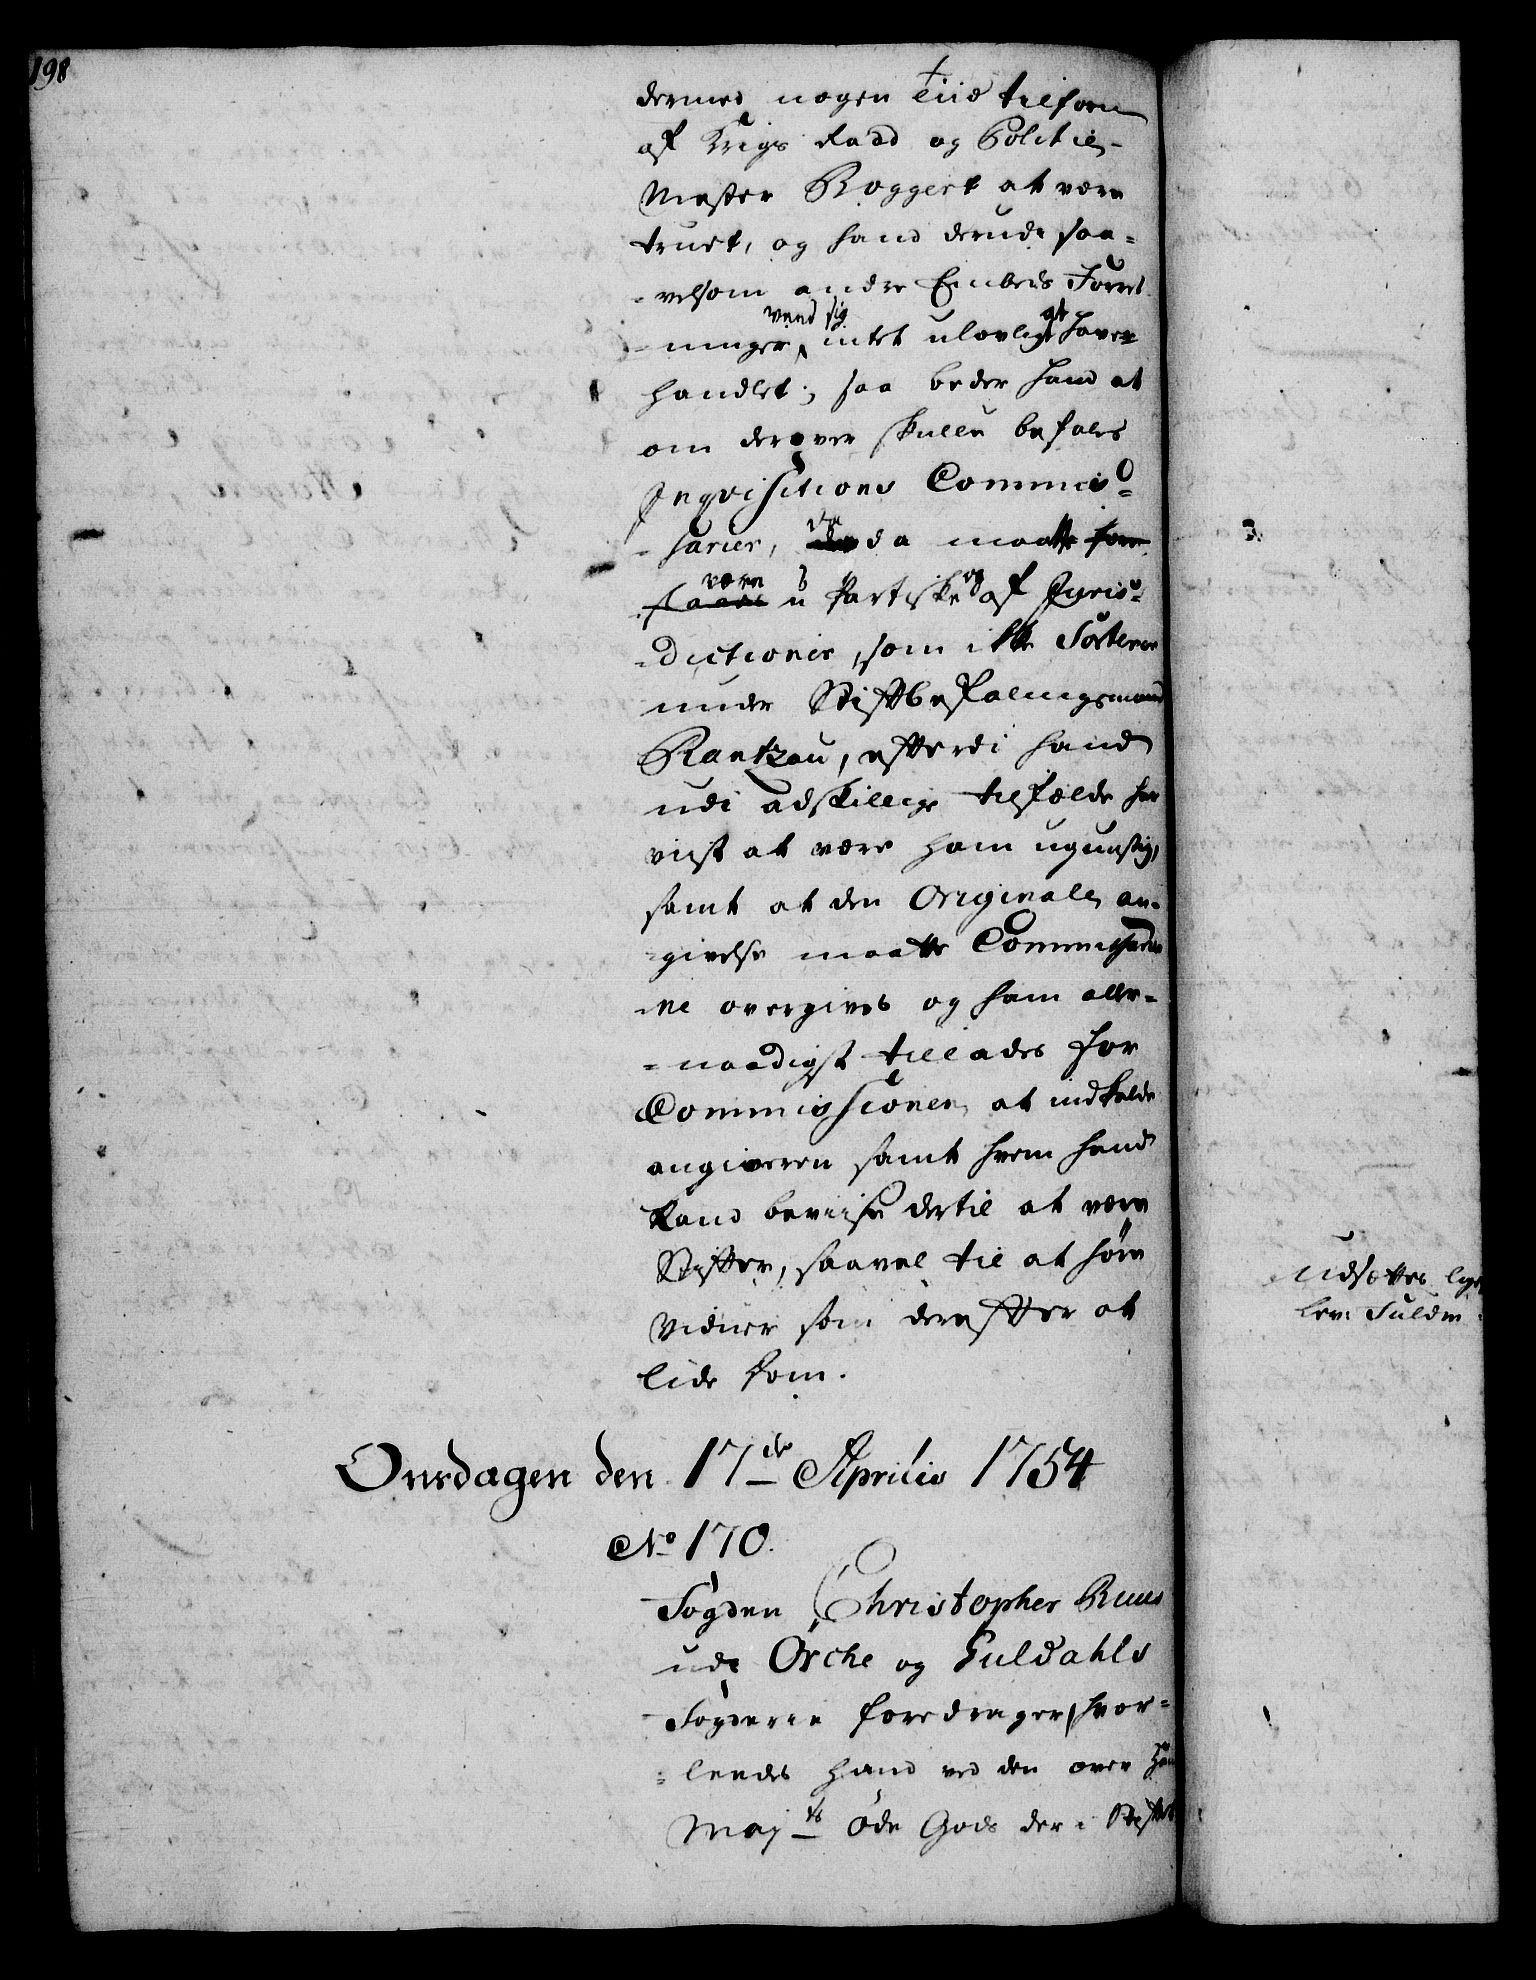 198
dermed nogen Tiid tilforn
af Krigs Raad og Politie-
Mester Boggert at være
truet, og hand derude saa-
-velsom andre Embeds Forret-
-ninger vend sig intet ulovligt at haver
handlet; saa beder hand at
om derover skulle befales
Inqvisitions Commis-
-sarier, da maatte
være u Partiske og af Juris-
-dictioner, som ikke Sorterer
under Stiftbefalingsmand
Rantzau, efterdi hand
udi adskillige tilfælde har
viist at være ham ugunstig,
samt at den Originale an-
-givelse maatte Commissarier-
-ne overgives og ham aller-
-naadigst tillades for
Commissionen at indkalde
angiveren samt hvem hand
kand beviise dertil at være
Stifter, saavel til at høre
Vidner som derefter at
lide dom.
Onsdagen den 17de Aprilis 1754
No 170.
Fogden Christopher Buus
udi Orche og Guldahls
Fogderie foredrager, hvor-
-ledes hand ved den over
Majts øde Gods der i Stiftet
udsættes
lev: Guldm